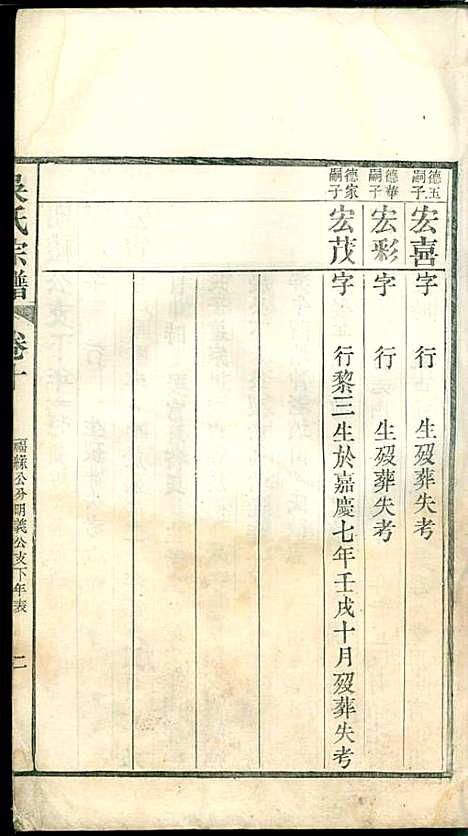 德玉嗣子
宏喜字 行 生歿葬失考
德華嗣子
宏彩字 行 生歿葬失考
德家嗣子
宏茂字 行黎三生於嘉慶七年壬戌十月歿葬失考
吳氏宗譜
卷十
福緣公分明義公支下年表
二